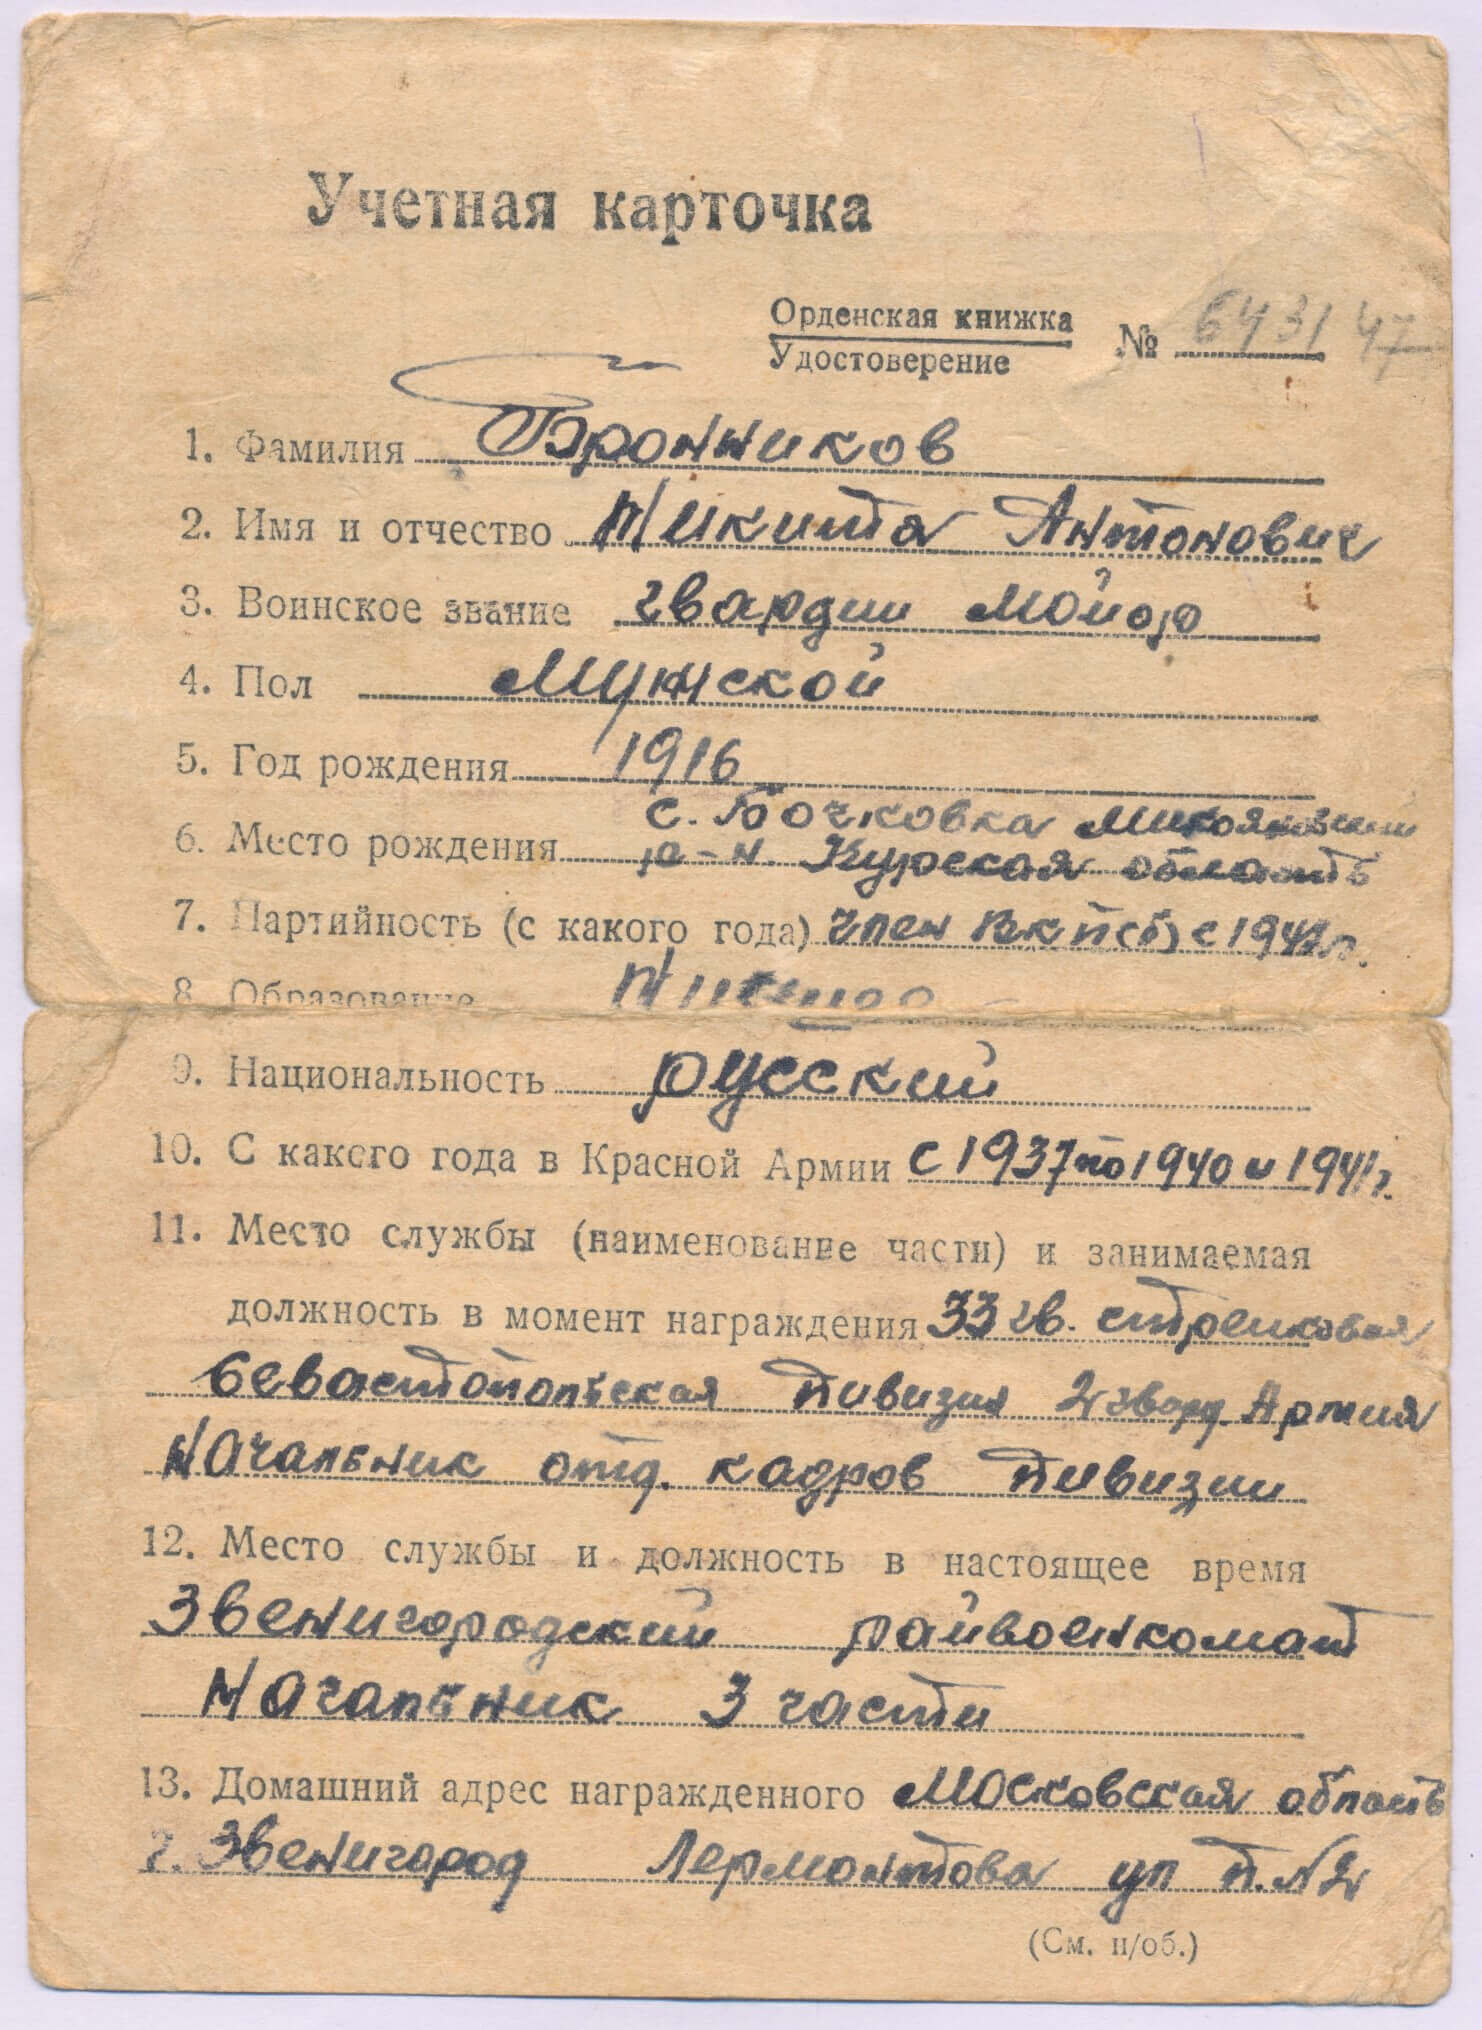 Учетная карточка
Орденская книжка
Удостоверение № 643147
1. Фамилия Бронников
2. Имя и отчество Никита Антонович
3. Воинское звание гвардии майор
4. Пол Мужской
5. Год рождения 1916
с. Бочковка Микояновский
6. Место рождения р-н. Курская область
7. Партийность (с какого года) член ВКП(б) с 1941г.
8. Образование Низшее
9. Национальность русский
10. С какого года в Красной Армии с 1937 по 1940 и 1941г.
11. Место службы (наименование части) и занимаемая
должность в момент награждения 33 гв. стрелковая
Севастопольская дивизия 2 гвард. Армия
Начальник отд. кадров дивизии
12. Место службы и должность в настоящее время
Звенигородский райвоенкомат
Начальник 3 части
13. Домашний адрес награжденного Московская область
г. Звенигород Лермонтова ул д. №2
(См. н/об.)